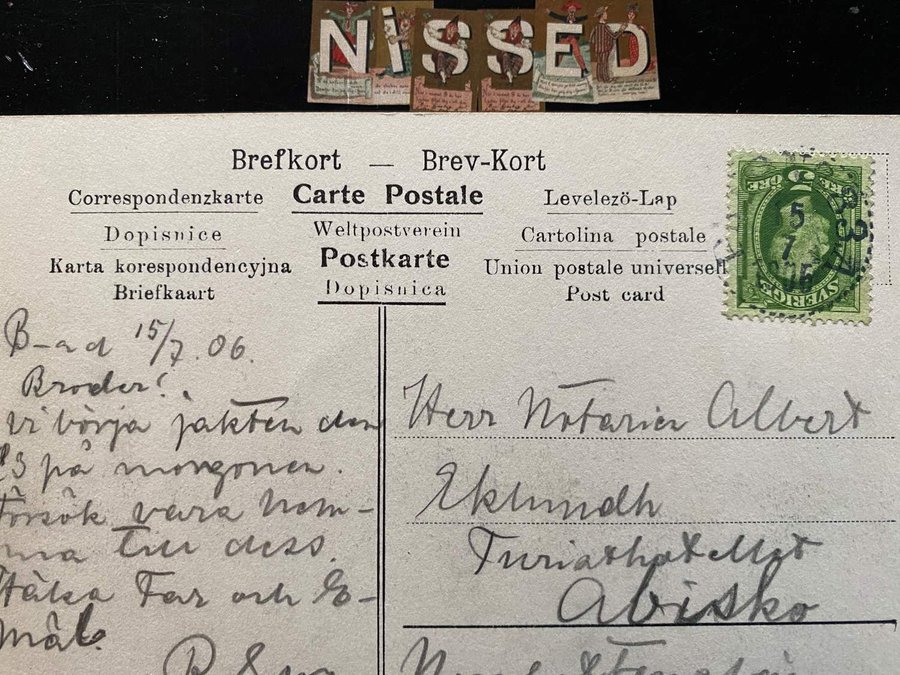 NiSSED
Brefkort — Brev-Kort
Correspondenzkarte Carte Postale Levelezö-Lap
Dopisnice Weltpostverein Cartolina postale
Karta korespondencyjna Postkarte Union postale universell
Briefkaart Dopisnica Post card
5 ÖRE
5
7
SVERIGE
B-ad 15/7.06.
Broder!
vi börja jakten den
23 på morgonen.
Försök vara hem-
ma till dess.
Hälsa Far och E-
Herr Notarien Albert
Eklundh
Turisthotellet
Abisko